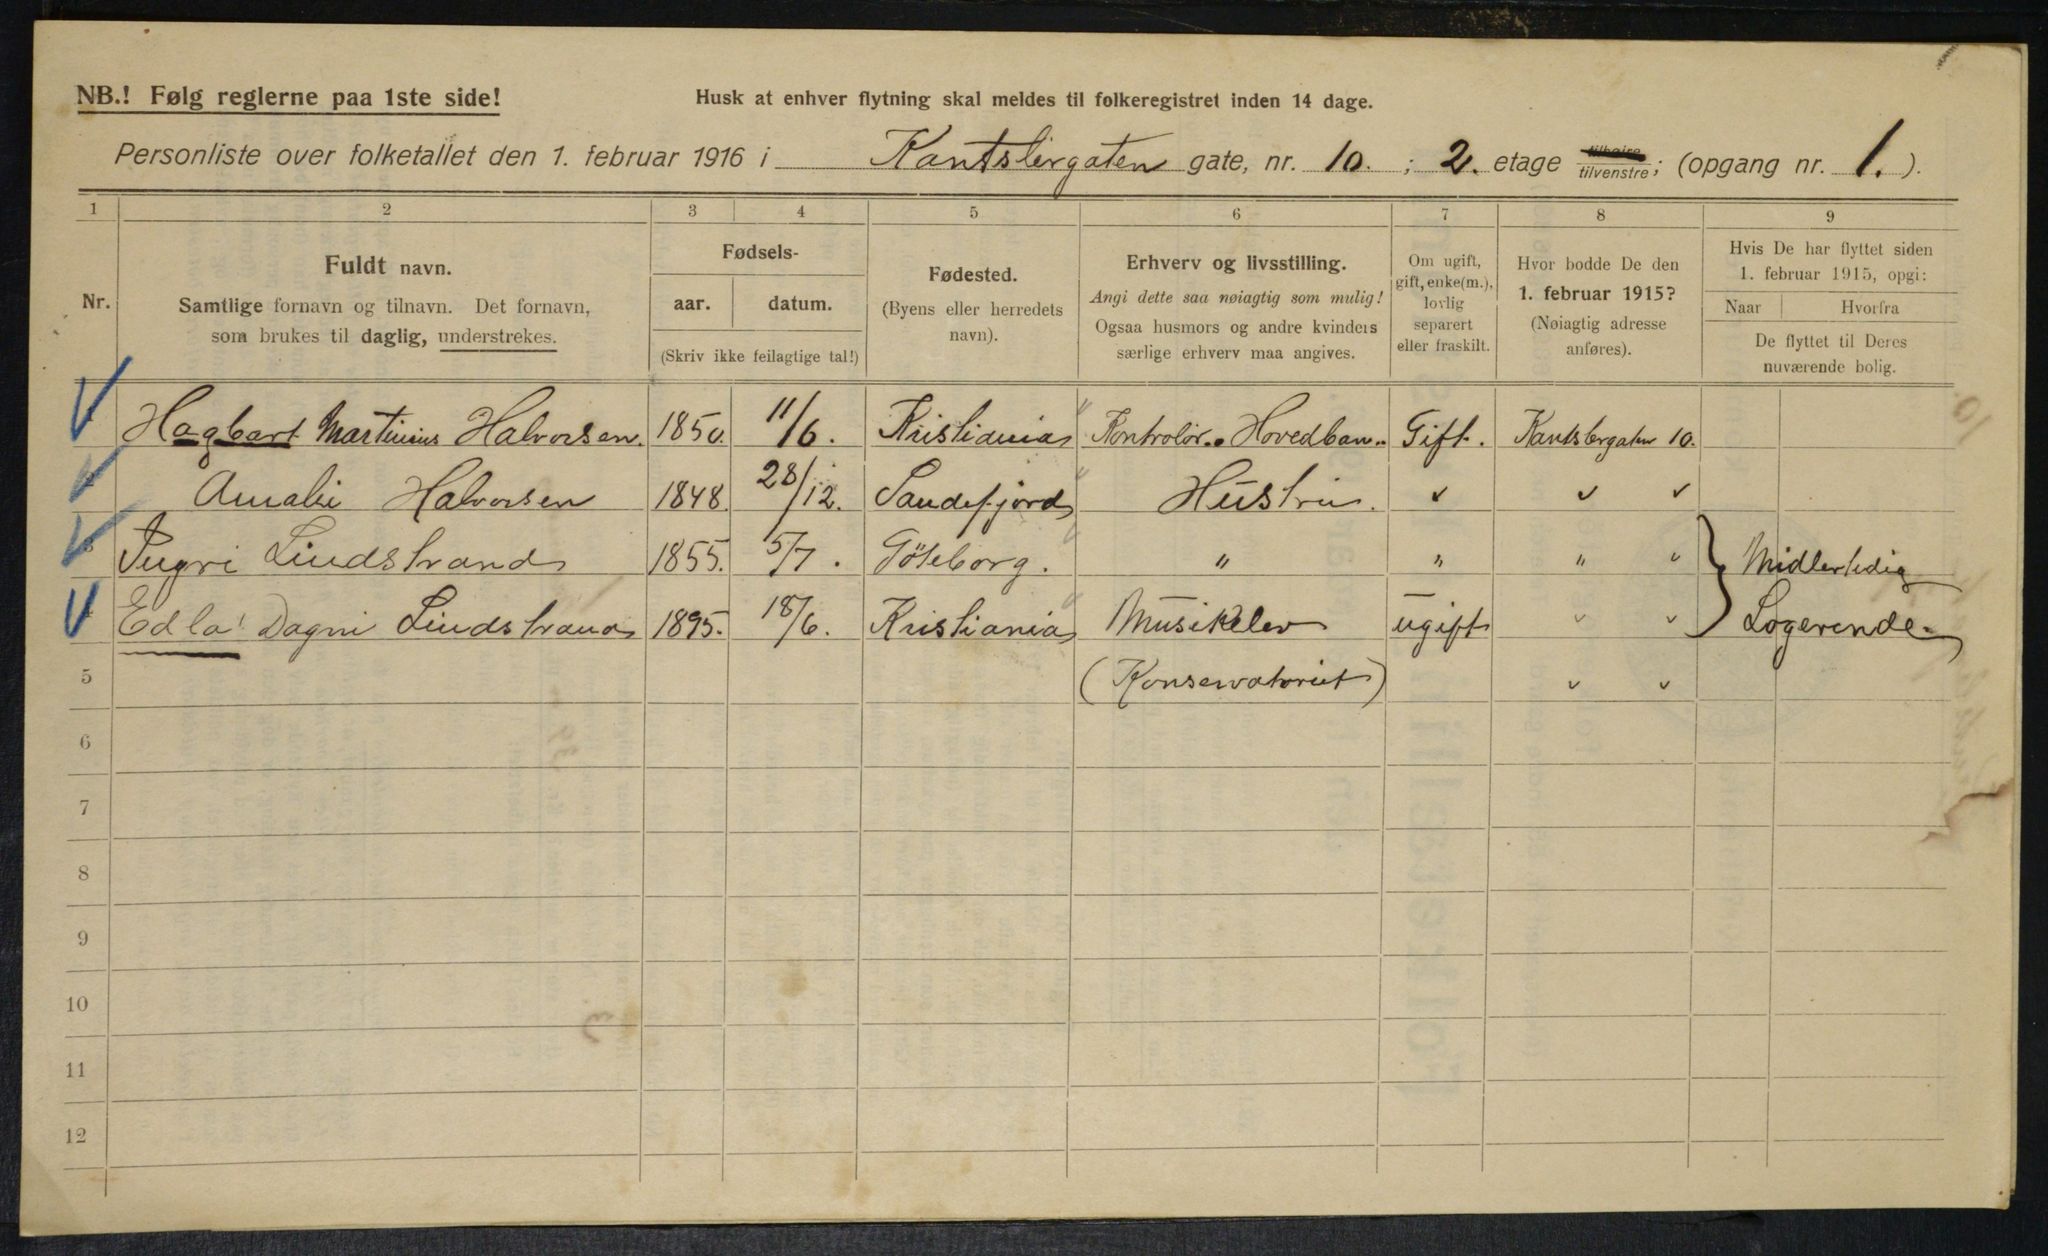 NB.! Følg reglerne paa 1ste side!
Husk at enhver flytning skal meldes til folkeregistret inden 14 dage.
Personliste over folketallet den 1. februar 1916 i Kantslergaten gate, nr. 10. ; 2. etage tilhøire tilvenstre; (opgang nr. 1. ).
1 2 3 4 5 6 7 8 9
Nr.
Fuldt navn.
Samtlige fornavn og tilnavn. Det fornavn,
som brukes til daglig, understrekes.
Fødsels-
aar. datum.
(Skriv ikke feilagtige tal!)
Fødested.
(Byens eller herredets
navn).
Erhverv og livsstilling.
Angi dette saa nøiagtig som mulig!
Ogsaa husmors og andre kvinders
særlige erhverv maa angives.
Om ugift,
gift, enke(m.),
lovlig
separert
eller fraskilt.
Hvor bodde De den
1. februar 1915?
(Nøiagtig adresse
anføres).
Hvis De har flyttet siden
1. februar 1915, opgi:
Naar Hvorfra
De flyttet til Deres
nuværende bolig.
Hagbart Martinius Halvorsen. 1850. 11/6. Kristiania Kontrolør. Hovedban.. Gift. Kantslergaten 10.
Amalie Halvorsen 1848. 28/12. Sandefjord Hustru. " " "
3 Ingri Lindstrand 1855. 5/7. Göteborg. " " " " Midlertidig
4 Edla Dagni Lindstrand 1895. 18/6. Kristiania Musikelev ugift " " Logerende.
5 (Konservatoriet) " "
6
7
8
9
10
11
12